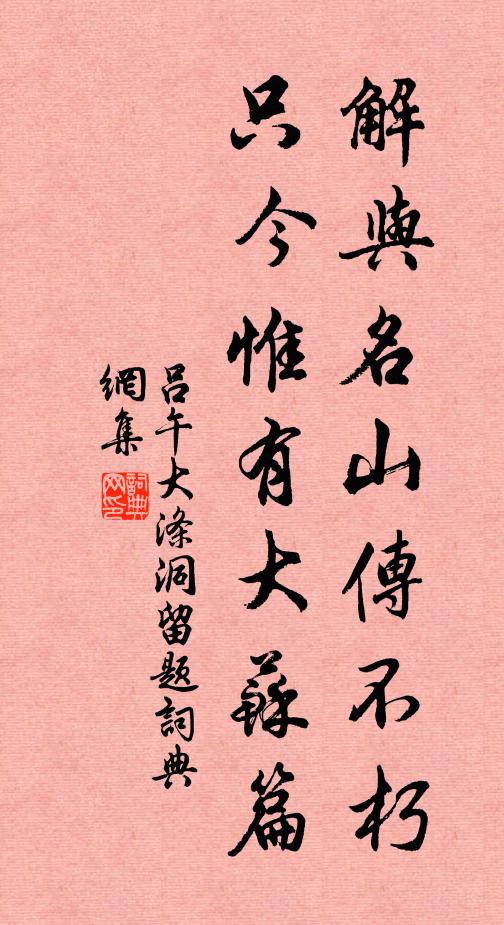 解與名山傳不朽
只今惟有大蘇篇
呂午大滌洞留題詞典
網集
詞典
网印